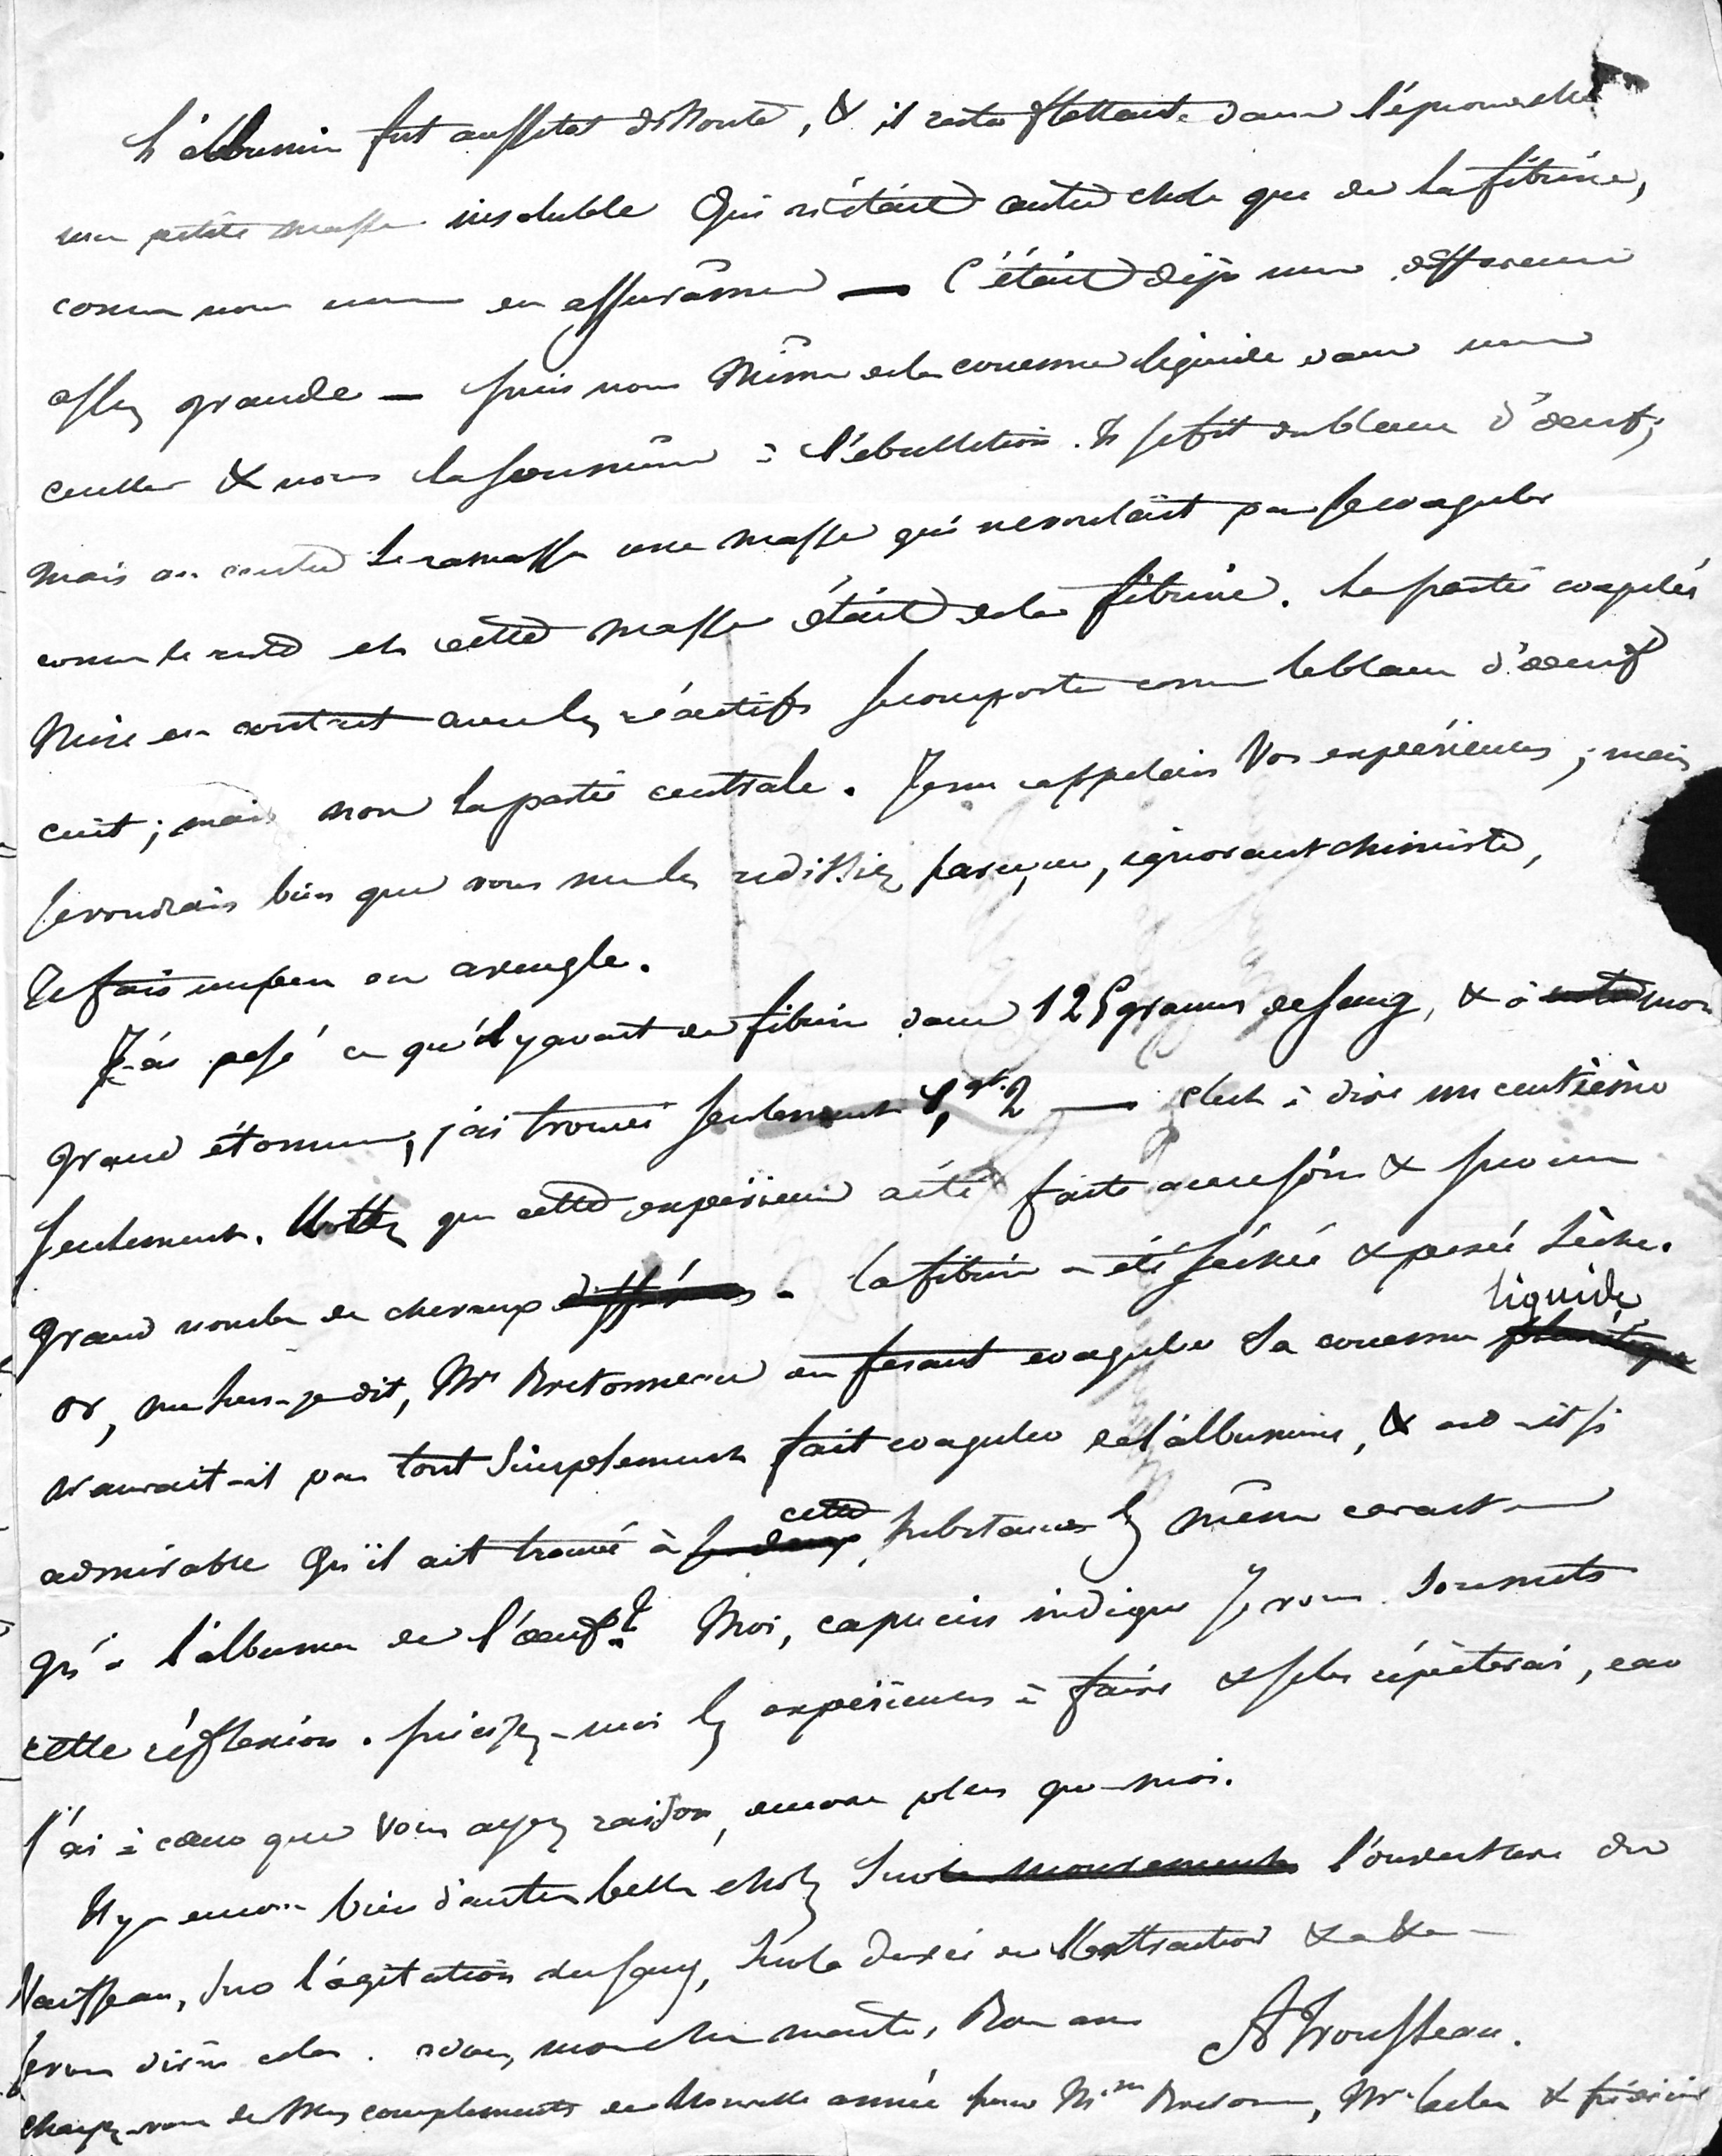 L'albumine fut aussitot dissoute, & il resta flottant dans l'éprouvette
une petite masse insoluble qui n'était autre chose que de la fibrine,
comme nous nous en assurâmes — C'était déjà une différence
assez grande — puis nous mîmes de la couenne liquide dans une
cuiller & nous la soumîmes à l'ébullition. Il se fit du blanc d'oeuf;
mais au centre se ramassa une masse qui ne voulait pas se coaguler
comme le reste et cette masse était de la fibrine. La partie coagulée
mise en contact avec les réactifs se comporta comme le blanc d'oeuf
cuit; mais non la partie centrale. Je me rappelais vos expériences; mais
je voudrais bien que vous me les redissiez parceque, ignorant chimiste,
je fais un peu en aveugle.
J'ai pesé ce qu'il y avait de fibrine dans 125 grammes de sang, & à mon
grand étonnement, j'ai trouvé seulement 1,gr.2 — c'est à dire un centième
seulement. Nottez que cette expérience a été faite avec soin & sur un
grand nombre de chevaux. la fibrine a été séchée & pesée sèche.
or, me suis-je dit, Mr Bretonneau en fesant coaguler la couenne liquide
n'aurait-il pas tout simplement fait coaguler de l'albumine, & est-il si
admirable qu'il ait trouvé à cette substance les mêmes caractères
qu'à l'albumen de l'oeuf? Moi, capucin indigne je vous soumets
cette réflexion. précisez-moi les expériences à faire & je les répèterai, car
j'ai à coeur que vous ayez raison, encore plus que moi.
Il y a encore bien d'autres belles choses sur l'ouverture du
Vaisseau, sur l'agitation du sang, sur la durée de l'extraction &a &a
je vous dirai cela. adieu, mon cher maître, Bon an
A Trousseau.
chargez-vous de mes compliments de nouvelle année pour Mme Bretonneau, Mr &